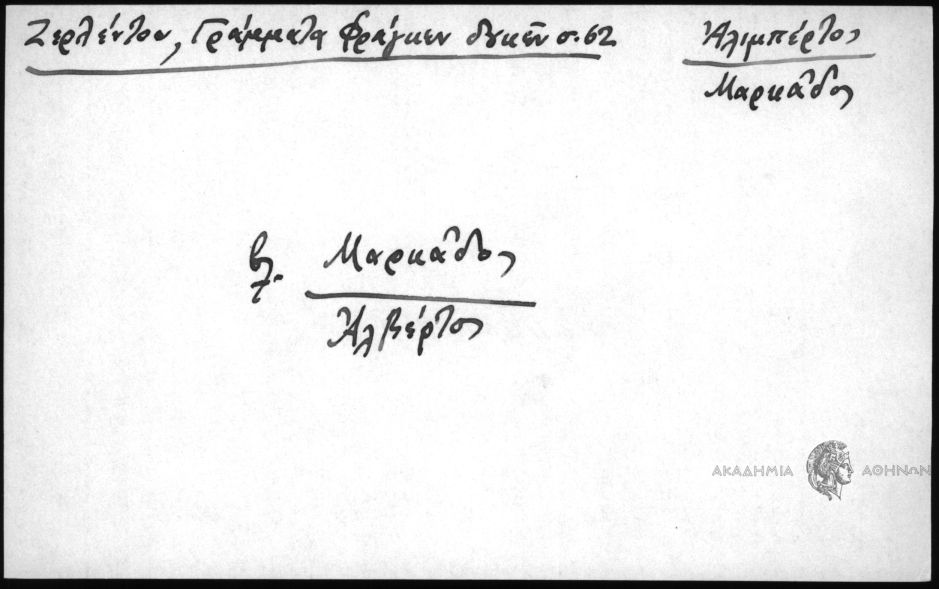 Ζερλέντου, Γράμματα Φράγκων δουκῶν σ. 62
Ἀλιμπέρτος
Μαρκᾶδος
βλ. Μαρκᾶδος
Ἀλβέρτος
ΑΚΑΔΗΜΙΑ ΑΘΗΝΩΝ